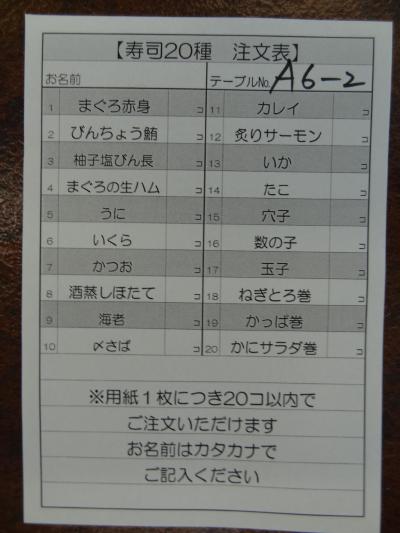 【寿司20種 注文表】
お名前 テーブルNo. A6-2
1 まぐろ赤身 コ 11 カレイ コ
2 びんちょう鮪 コ 12 炙りサーモン コ
3 柚子塩びん長 コ 13 いか コ
4 まぐろの生ハム コ 14 たこ コ
5 うに コ 15 穴子 コ
6 いくら コ 16 数の子 コ
7 かつお コ 17 玉子 コ
8 酒蒸しほたて コ 18 ねぎとろ巻 コ
9 海老 コ 19 かっぱ巻 コ
10 〆さば コ 20 かにサラダ巻 コ
※用紙1枚につき20コ以内で
ご注文いただけます
お名前はカタカナで
ご記入ください